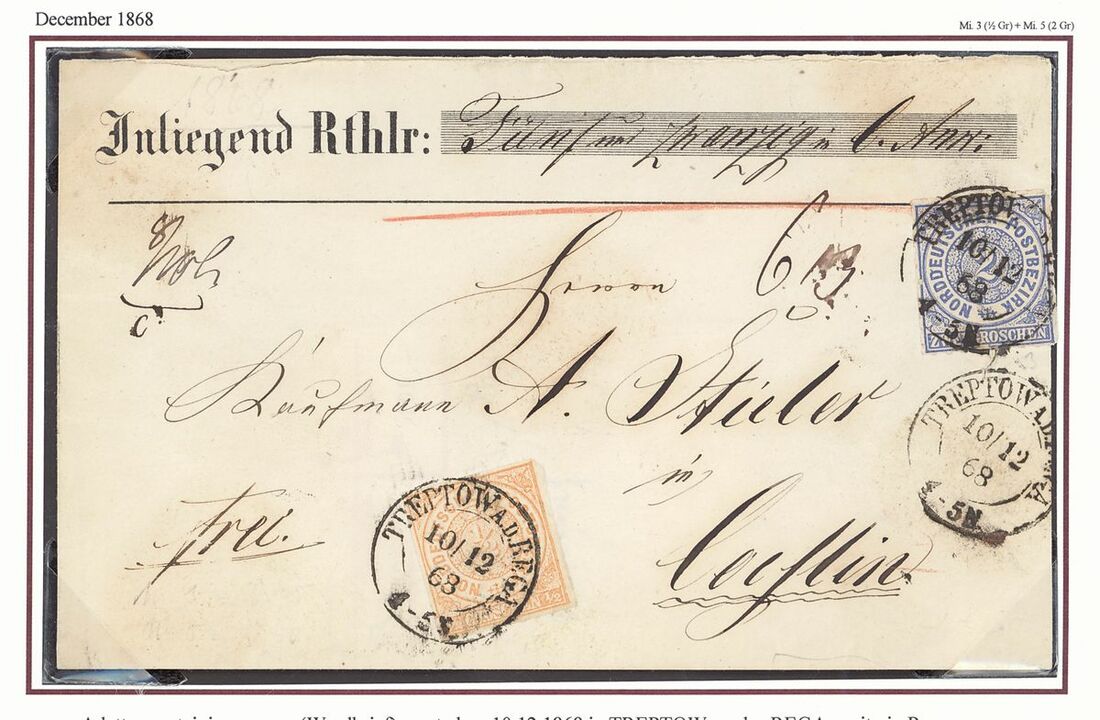 December 1868
Mi. 3 (½ Gr) + Mi. 5 (2 Gr)
Inliegend Rthlr: Fünf und zwanzig in C. Anw:
Herrn
Kaufmann A. Stieler
in
Coeslin.
frei.
NORDDEUTSCHER POSTBEZIRK
2
ZWEI GROSCHEN
TREPTOW A.D. REGA
10/12
68
4-5N
TREPTOW A.D. REGA
10/12
68
4-5N
TREPTOW A.D. REGA
10/12
68
4-5N